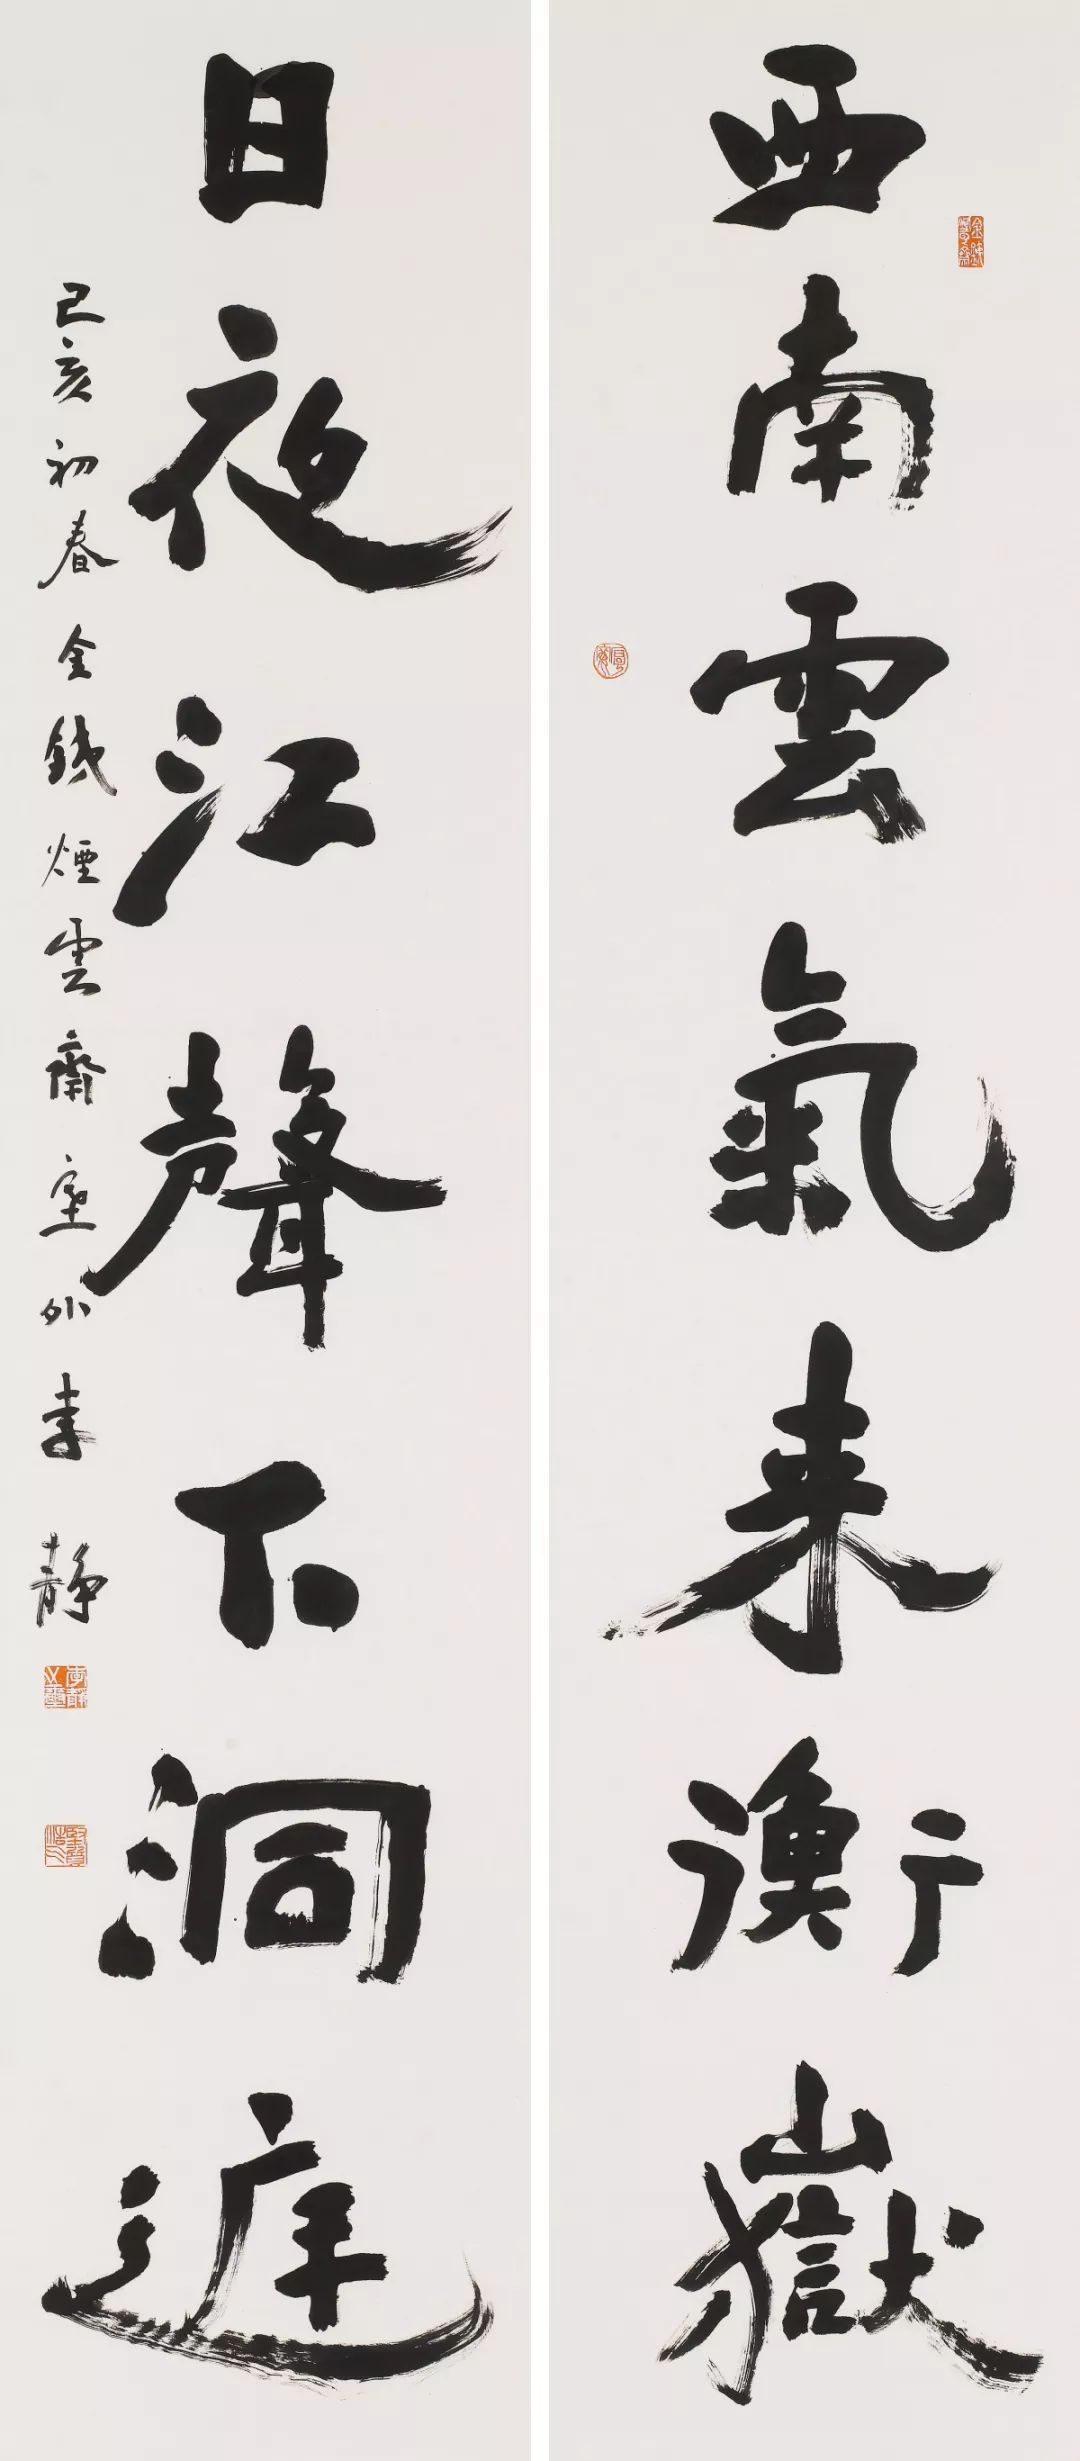 西南雲氣来衡嶽
日夜江聲下洞庭
己亥初春金煙雲齋室外李静